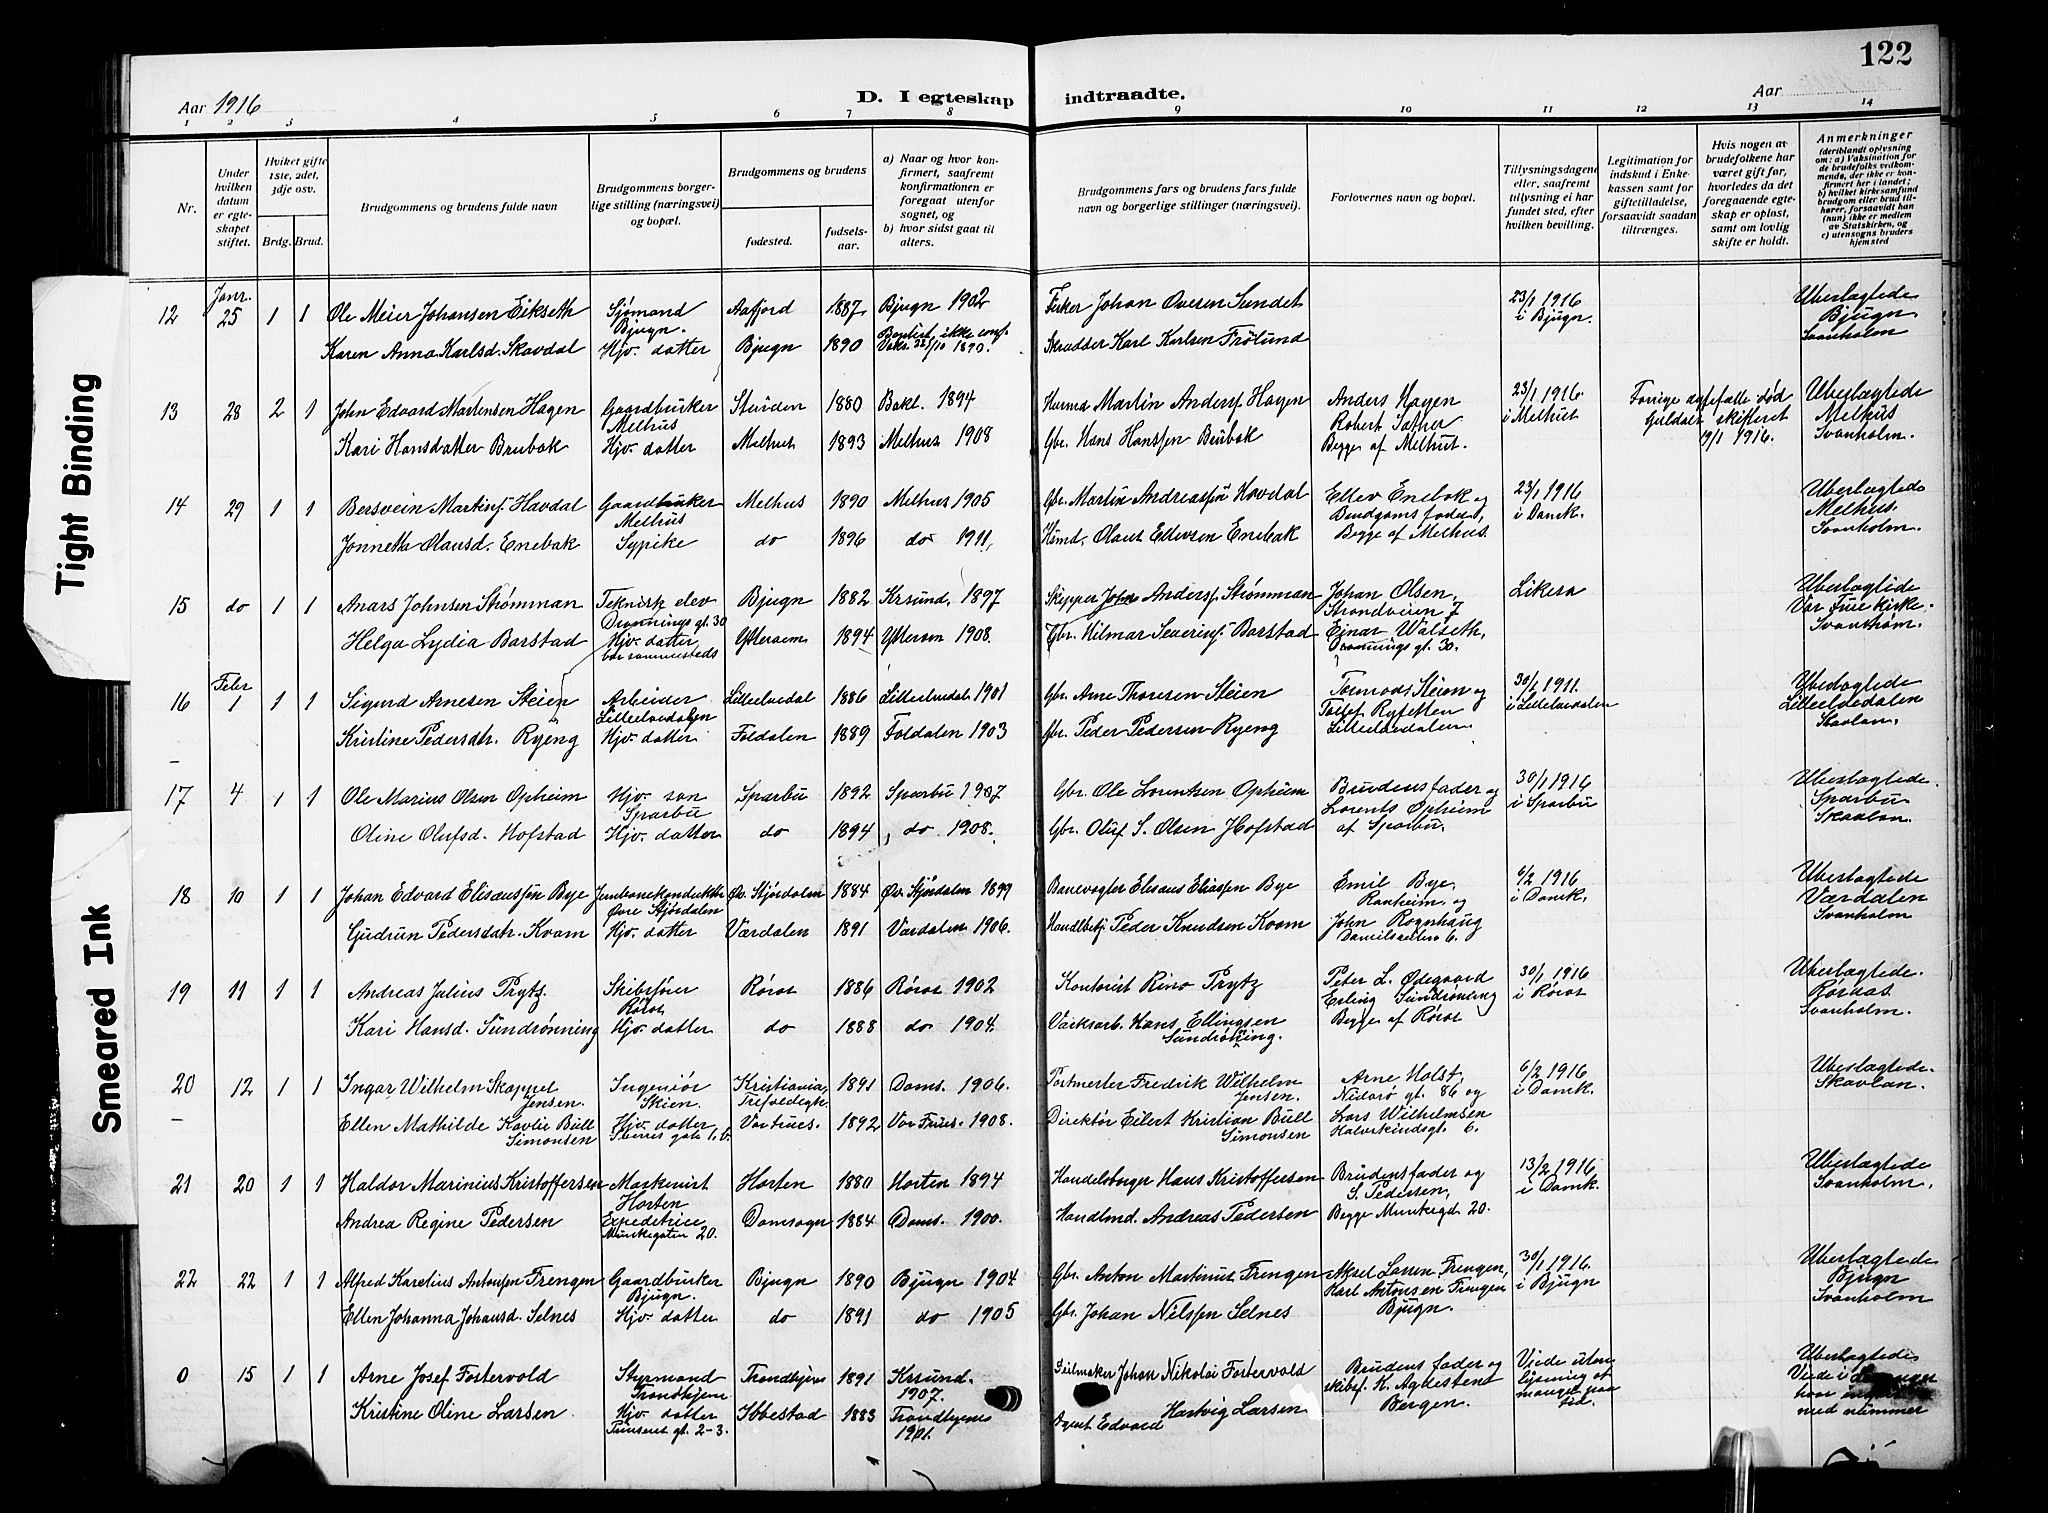 122
Aar 1916
D. I egteskap indtraadte.
Aar
1 2 3 4 5 6 7 8 9 10 11 12 13 14
Nr.
Under hvilken datum er egteskapet stiftet.
Hviket gifte 1ste, 2det, 3dje osv.
Brdg. Brud.
Brudgommens og brudens fulde navn
Brudgommens borgerlige stilling (næringsvei) og bopæl.
Brudgommens og brudens
fødested.
fødselsaar.
a) Naar og hvor konfirmert, saafremt konfirmationen er foregaat utenfor sognet, og
b) hvor sidst gaat til alters.
Brudgommens fars og brudens fars fulde navn og borgerlige stillinger (næringsvei).
Forlovernes navn og bopæl.
Tillysningsdagene eller, saafremt tillysning ei har fundet sted, efter hvilken bevilling.
Legitimation for indskud i Enkekassen samt for giftetilladelse, forsaavidt saadan tiltrænges.
Hvis nogen av brudefolkene har været gift før, hvorledes da det foregaaende egteskap er opløst, samt om lovlig skifte er holdt.
Anmerkninger (deriblandt oplysning om: a) Vaksination for de brudefolks vedkommende, der ikke er konfirmert her i landet; b) hvilket kirkesamfund brudgom eller brud tilhører, forsaavidt han (hun) ikke er medlem av Statskirken, og c) utensogns bruders hjemsted
Tight Binding
Smeared Ink
12 Janr. 25 1 1 Ole Meier Johansen Eikseth Sjømand Bjugn. Aafjord 1887 Bjugn 1902 Fisker Johan Ovesen Sundet 23/1 1916 i Bjugn. Ubeslagtede Bjugn Svanholm
Karen Anna Karlsd. Skavdal Hjv. datter Bjugn 1890 Baptist, ikke conf. Vaks. 1890. Skrædder Karl Karlsen Frølund
13 28 2 1 John Edvard Martensen Hagen Gaardbruker Melhus 1880 Bakl. 1894 Martin Anders. Hagen Anders Hagen Robert Sæther Begge af Melhus. 23/1 1916 i Melhus Forrige egtefælle død skifteret 19/1 1916. Ubeslagtede Melhus Svanholm.
Kari Hansdatter Brubak Hjv. datter Melhus 1893 Melhus 1908 Gbr. Hans Hanssen Brubak
14 29 1 1 Bersvein Martins. Havdal Gaardbruker Melhus Melhus 1890 Melhus 1905 Gbr. Martin Andreassen Havdal Ellev Enebak og Brudgoms fader, Begge af Melhus. 23/1 1916 i Domk. Ubeslagtede Melhus. Svanholm.
Jonnetta Olausd. Enebak Sypike do 1896 do 1911 Hsmd. Olaus Ellevsen Enebak
15 do 1 1 Anars Johnsen Strømman Teknisk elev Dronnings gt. 30 Bjugn 1882 Krsund. 1897 Skipper John Anders. Strømman Johan Olsen, Strandveien 7 Ejnar Walseth, Dronnings gt. 30. Likesa Ubeslagtede Vår Frue kirke. Svanholm.
Helga Lydia Barstad Hjv. datter, bor sammesteds Ytterøen 1894 Ytterøen 1908. Gbr. Hilmar Severins. Barstad
16 Febr 1 1 1 Sigurd Arnesen Steien Arbeider Lilleelvedalen Lilleelvedal 1886 Lilleelvedal 1901 Gbr. Arne Thoresen Steien Tormod Steien og Tollef Lilleelvedalen 30/1 1911. i Lilleelvedalen Ubeslagtede Lilleelvedalen Skavlan.
Kristine Pedersdtr. Ryeng Hjv. datter Foldalen 1889 Foldalen 1903 Gbr. Peder Pedersen Ryeng
17 4 1 1 Ole Marius Olsen Opheim Hjv. søn Sparbu Sparbu 1892 Sparbu 1907 Gbr. Ole Lorentsen Opheim Brudens fader og Lorents Opheim af Sparbu. 30/1 1916 i Sparbu Ubeslagtede Sparbu Skavlan.
Oline Olufsd. Hofstad Hjv. datter do 1894 do 1908. Gbr. Oluf S. Olsen Hofstad
18 10 1 1 Johan Edvard Elisæussøn Bye Jernbanekonduktør Øvre Stjørdalen Øv. Stjørdalen 1884 Øv. Stjørdalen 1899 Banevogter Elisæus Eliassen Bye Emil Bye, Ranheim og John Rognhaug 6. 6/2 1916 i Domk. Ubeslagtede Værdalen Svanholm
Gudrun Pedersdatr. Kvam Hjv. datter Værdalen 1891 Værdalen 1906. Peder Knudsen Kvam
19 11 1 1 Andreas Julius Prytz. Skibsfører Røros Røros 1886 Røros 1902 Kontorist Rino Prytz Peter L. Ødegaard Erling Sundrønning Begge af Røros 30/1 1916 i Røros Ubeslagtede. Røraas. Svanholm.
Kari Hansd. Sundrønning Hjv. datter do 1888 do 1904. Værksarb. Hans Ellingsen Sundrønning.
20 12 1 1 Ingar Wilhelm Skappel Jensen. Ingeniør Skien. Kristiania, Trefoldigh. 1891 Doms. 1906. Postmester Fredrik Wilhelm Jensen. Arne Holst, Nidarø gt. 86 og Lars Wilhelmsen 6. 6/2 1916 i Domk. Ubeslagtede. Skavlan.
Ellen Mathilde Kavlie Bull Simonsen Hjv. datter, Sverres gate 1.b. Vor Frues. 1892 Vor Frues. 1908. Direktør Eilert Kristian Bull Simonsen
21 20 1 1 Haldor Marinius Kristoffersen Maskinist Horten Horten 1880 Horten 1894 Handelsborger Hans Kristoffersen Brudens fader og S. Pedersen, Begge Munkegd. 20. 13/2 1916 i Domk. Ubeslagtede Svanholm.
Andrea Regine Pedersen Expeditrice Munkegaten 20. Domsogn 1884 Doms. 1900. Handlmd. Andreas Pedersen
22 22 1 1 Alfred Karelius Antonsen Frengen Gaardbruker Bjugn. Bjugn 1890 Bjugn 1904 Gbr. Anton Martinus Frengen Aksel Larsen Frengen, Karl Antonsen Frengen Bjugn. 30/1 1916. i Bjugn Ubeslagtede Bjugn Svanholm
Ellen Johanna Johansd. Selnes Hjv. datter do 1891 do 1905 Gbr. Johan Nilssen Selnes
0 15 1 1 Arne Josef Fostervold Styrmand Trondhjem Trondhjem 1891 Krsund. 1907. Seilmaker Johan Nikolai Fostervold Brudens fader og skibsf. K. Bergen. Viede uten lysning af mangel paa tid. Ubeslagtede Viede i med nummer
Kristine Oline Larsen Hjv. datter gt. 2-3. Ibbestad 1883 Trondhjem 1901. Agent Edvard Hartvig Larsen